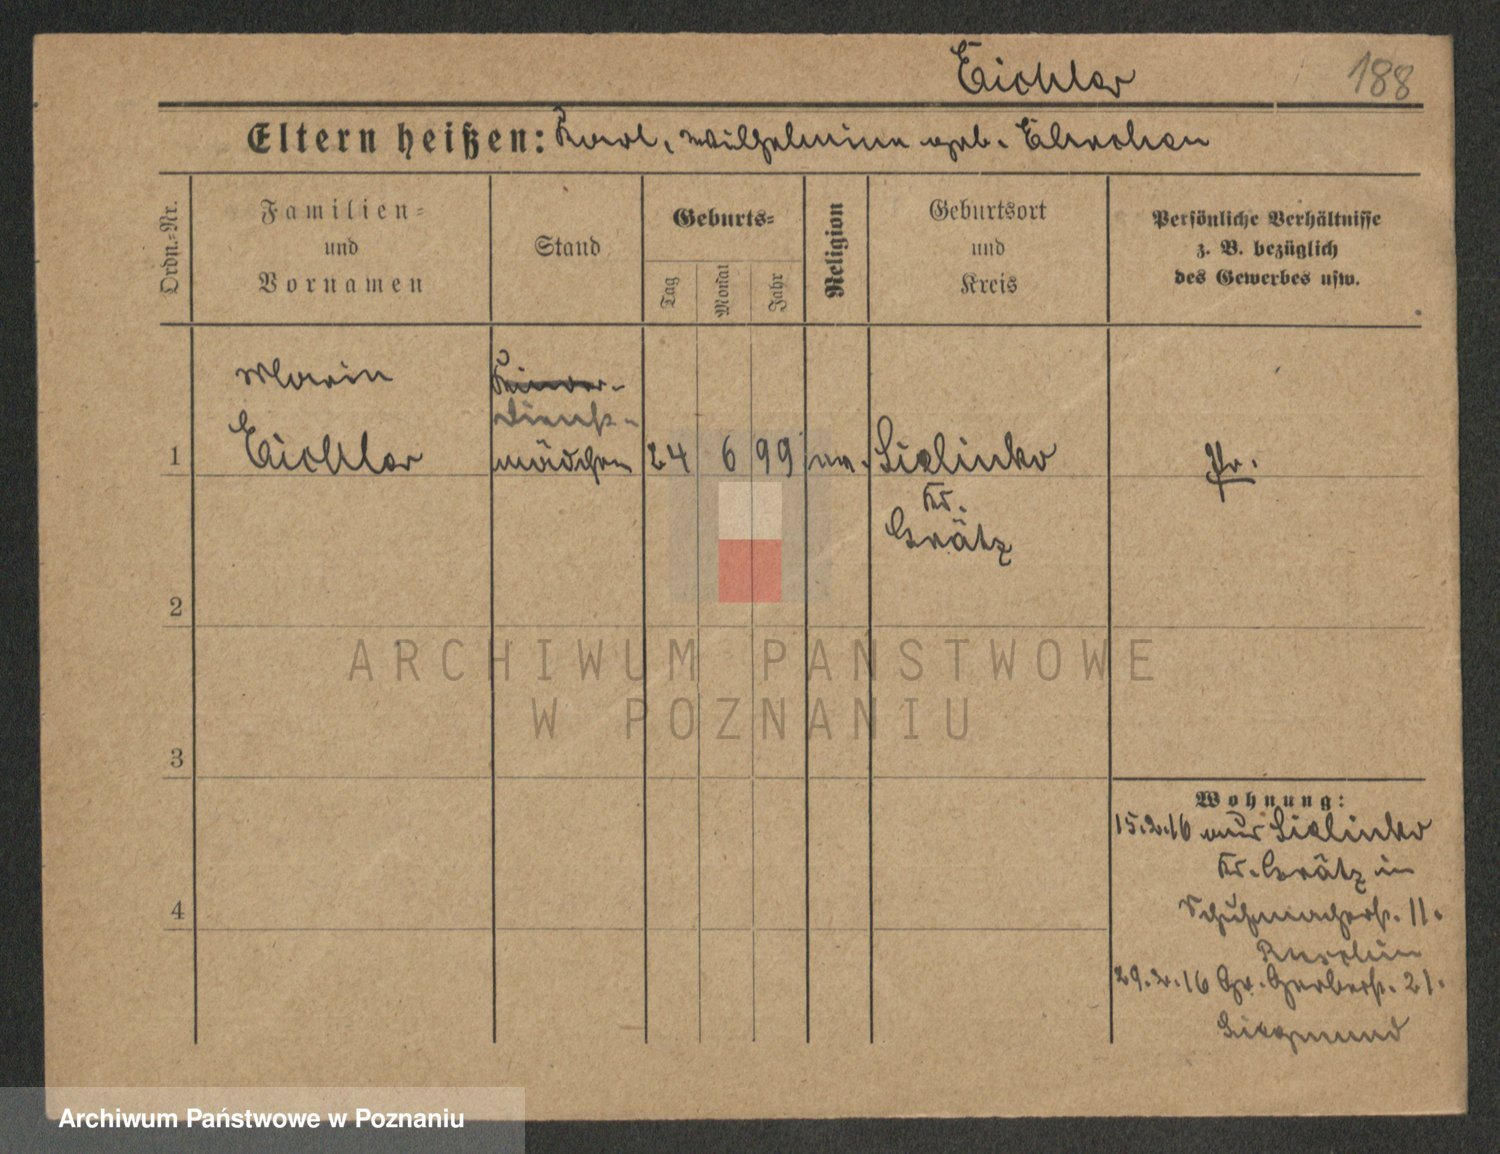 Eichler
188
Eltern heißen: Karl, Wilhelmine geb.
Ordn.-Nr.
Familien-
und
Vornamen
Stand
Geburts-
Tag
Monat
Jahr
Religion
Geburtsort
und
Kreis
Persönliche Verhältnisse
z. B. bezüglich
des Gewerbes usw.
Marie
Kinder-
Dienst-
1 Eichler mädchen 24 6 99 ev. Sielinko Pr.
Kr.
Grätz
2
ARCHIWUM PAŃSTWOWE
W POZNANIU
3
Wohnung:
15.2.16 aus Sielinko
Kr. Grätz in
4
Schuhmacherst. 11.
29.2.16 Gr. Gerberst. 21.
Siegmund
Archiwum Państwowe w Poznaniu